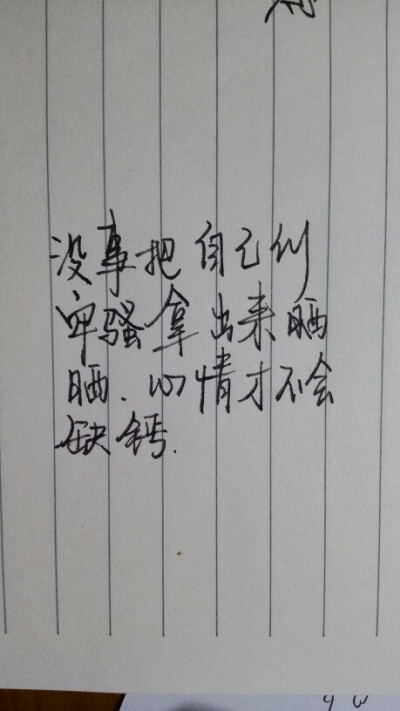 没事把自己的
牢骚拿出来晒
晒.心情才不会
缺钙.